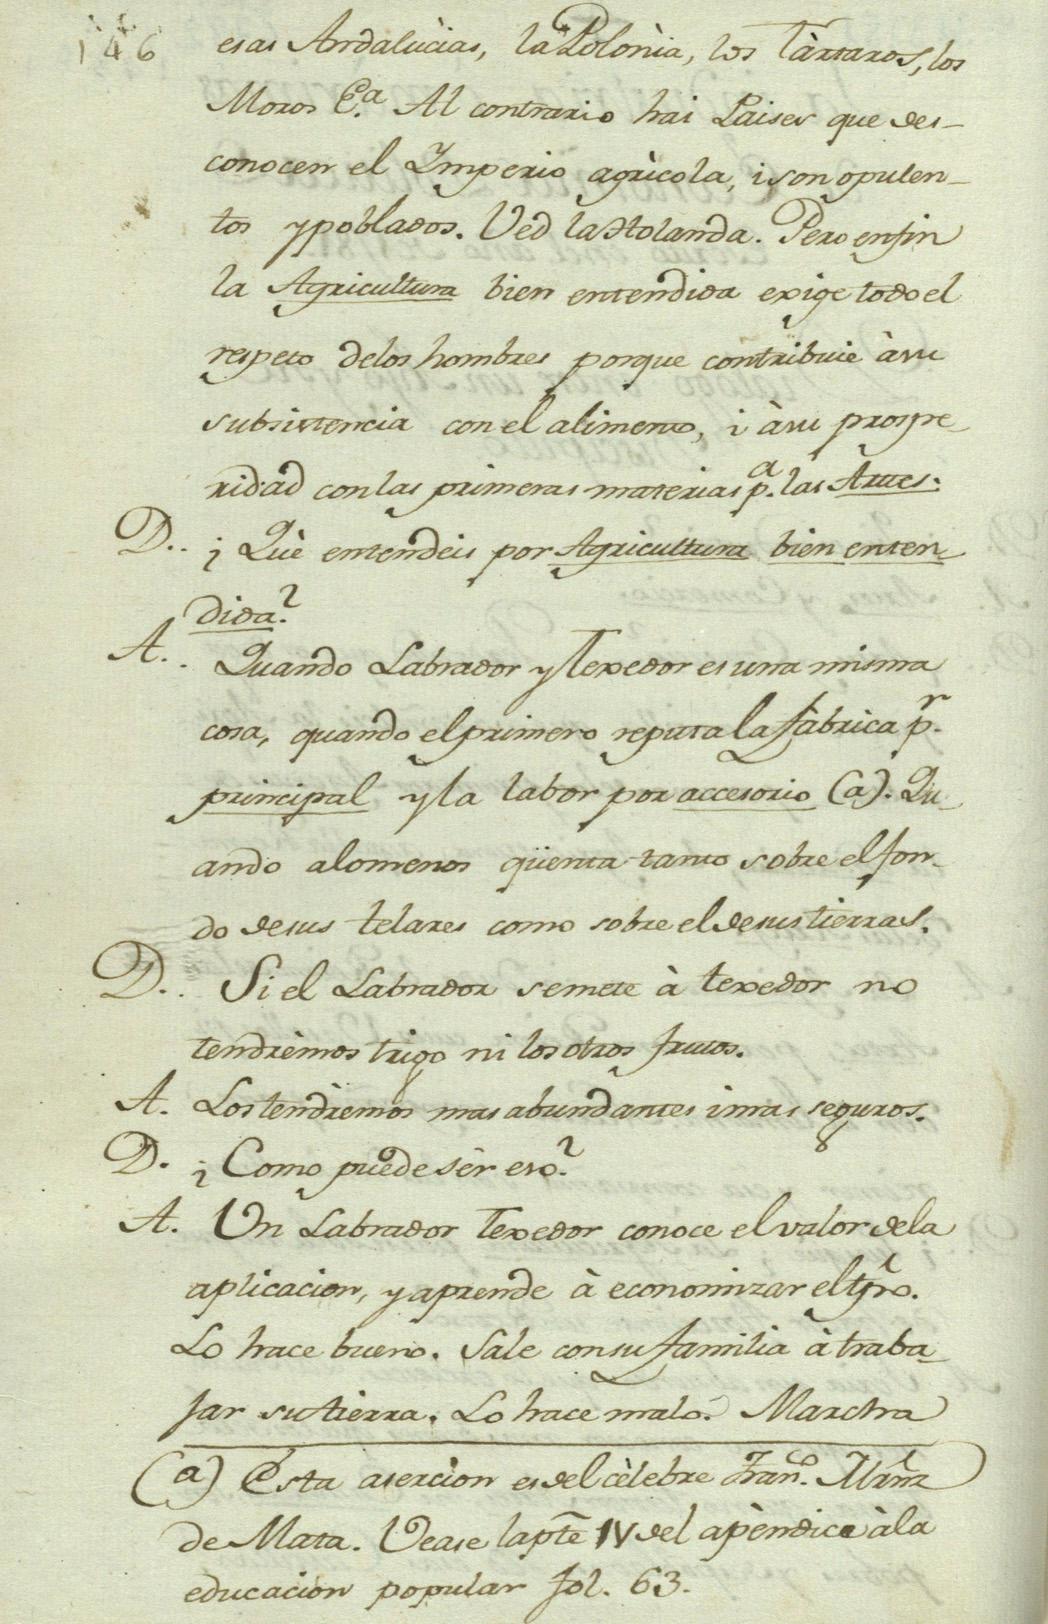 146 esas Andalùcias, la Polònia, los Tàrtaros, los
Moros &.a Al contrario hai Paises que des-
conocen el Imperio agrìcola, i son opulen-
tos y poblados. Ved la Holanda. Pero enfin
la Agricultura bien entendida exige todo el
respeto delos hombres porque contribuie àsu
subsistencia con el alimento, i àsu prospe-
ridad con las primeras materias p.a las Artes.
D.. ¿Què entendèis por Agricultura bien enten-
dida?
A.. Quando Labrador y Texedor es una misma
cosa, quando el primero reputa la fàbrica p.r
principal y la labor por accesorio (a). Qu-
ando alomenos qüenta tanto sobre el fon-
do desus telares como sobre el desus tierras.
D.. Si el Labrador semete à texedor no
tendrèmos trigo ni los otros frutos.
A. Los tendrèmos mas abundantes i mas seguros.
D. ¿Como puede sèr eso?
A. Un Labrador Texedor conoce el valor dela
aplicacion, y aprende à economizar el tpo.
Lo hace bueno. Sale consu familia à traba-
jar su tierra. Lo hace malo. Marcha
(a) Esta asercion es del cèlebre Fran.co Mrnz
de Mata. Vease la pte IV del apèndice àla
educacion popular fol. 63.